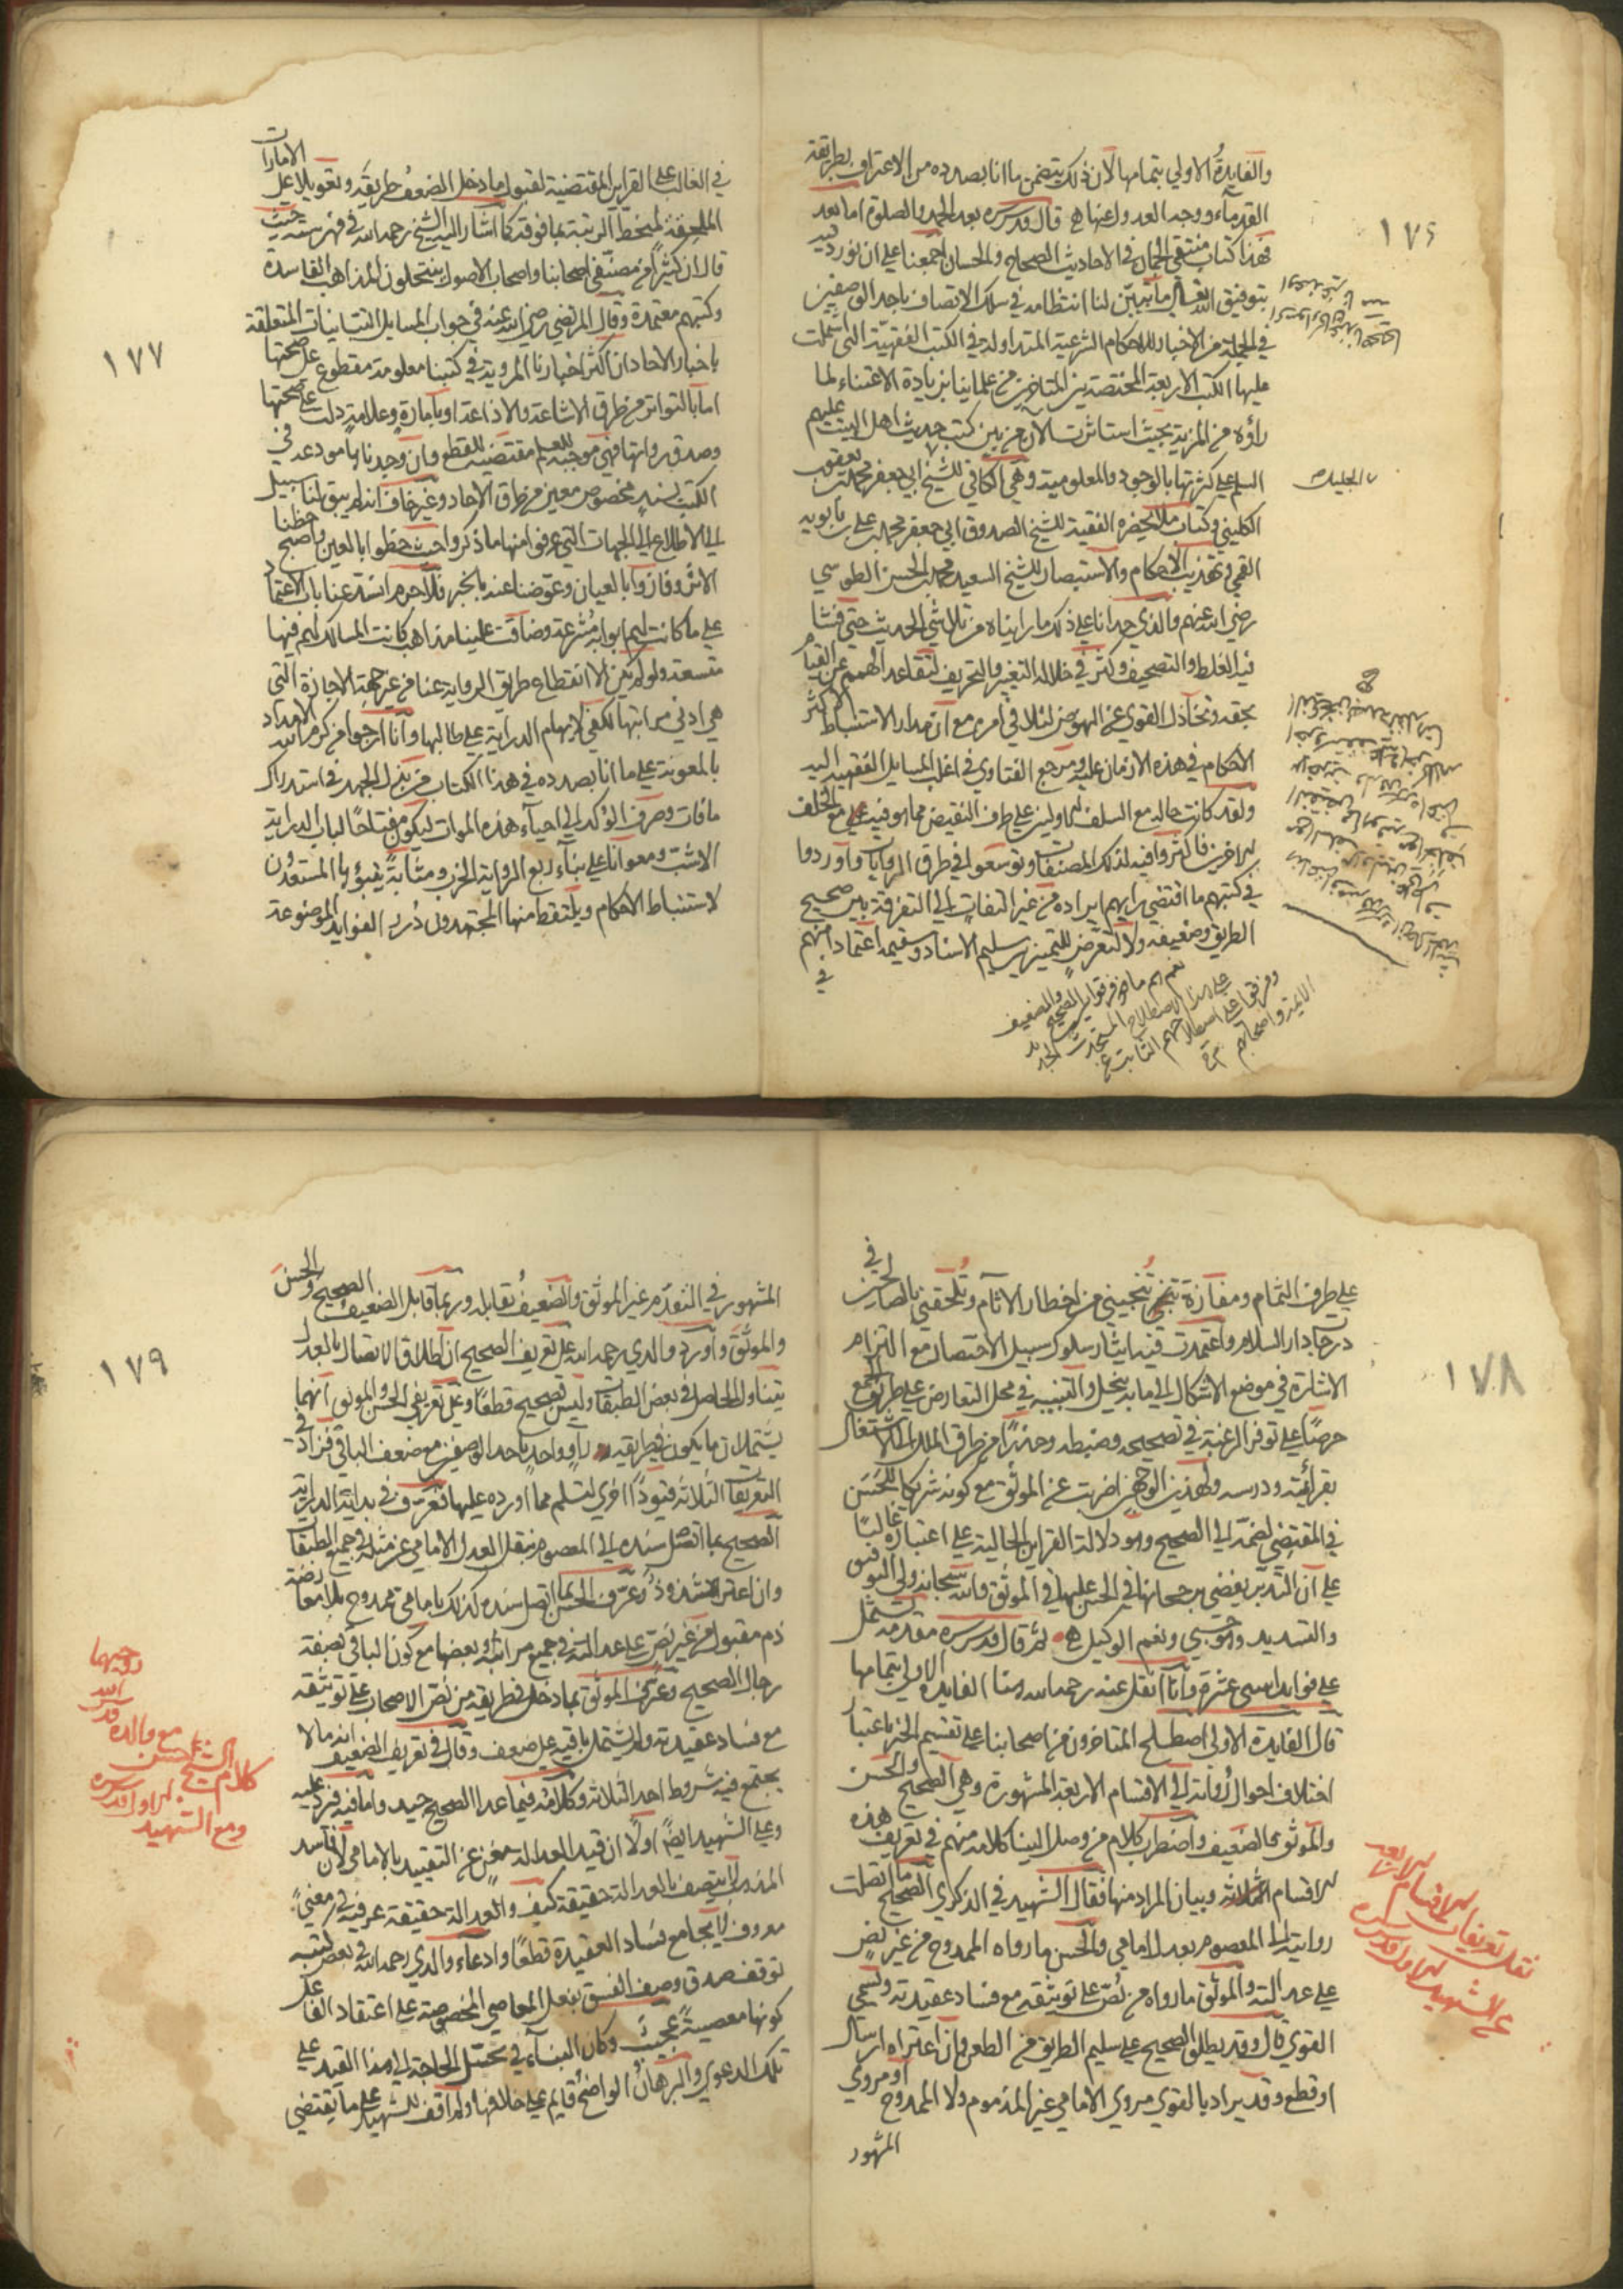 ١٧٦
والفايدة الاولي بتمامها لان ذلك يتضمن ما انا بصدده من الاعتراف بطريقة
القدماء ووجه العدول عنها هي قال قدس سره بعد الحمد والصلوة اما بعد
فهذا كتاب منتقي الجمان في الاحاديث الصحاح والحسان اجمعنا علي ان نورد فيه
بتوفيق الله تعالي ما تبين لنا انتظامه في سلك الاتصاف باحد الوصفين
في الجملة من الاخبار للاحكام الشرعية المتداولة في الكتب الفقهية التي اشتملت
عليها الكتب الاربعة المختصة بين المتاخرين من علمائنا بزيادة الاعتناء لما
راوه من المزية بحيث استاثرت الآن من بين كتب حديث اهل البيت عليهم
السلم علي كثرتها بالوجود والمعلومية وهي الكافي للشيخ ابي جعفر محمد بن يعقوب
الكليني وكتاب من لا يحضره الفقيه للشيخ الصدوق ابي جعفر محمد بن علي بن بابويه
القمي وتهذيب الاحكام والاستبصار للشيخ السعيد محمد بن الحسن الطوسي
رضي الله عنهم والذي حدانا علي ذلك ما رايناه من تلاشي الحديث حتي فشا
فيه الغلط والتصحيف وكثر في خلاله التغيير والتحريف لتقاعد الهمم عن القيام
بحقه وتخاذل القوي عن النهوض لتلافي امره مع ان مدار الاستنباط لاكثر
الاحكام في هذه الازمان عليه ومرجع الفتاوي في اغلب المسايل الفقهية اليه
ولقد كانت حاله مع السلف الاولين علي طرف النقيض مما هو فيه مع الخلف
الاخرين فاكثروا فيه لذلك المصنفات وتوسعوا في طرق الروايات واوردوا
في كتبهم ما اقتضي رايهم ايراده من غير التفات الي التفرقة بين صحيح
الطريق وضعيفه ولا تعرض للتمييز بين سليم الاسناد وسقيمه اعتمادا منهم
في
الجليلة
نعم هم ما فرقوا بين الصحيح والضعيف
علي هذا الاصطلاح المستحدث الجديد
وفرقوا علي اصطلاحهم الثابت عن
الائمة واصحابهم
١٧٧
في الغالب علي القراين المقتضية لقبول ما دخل الضعف طريقه وتعويلا علي الامارات
الملحقة لمنحط الرتبة بما فوقه كما اشار اليه الشيخ رحمه الله في فهرسته حيث
قال ان كثيرا من مصنفي اصحابنا واصحاب الاصول ينتحلون المذاهب الفاسدة
وكتبهم معتمدة وقال المرتضي رضي الله عنه في جواب المسايل التبانيات المتعلقة
باخبار الاحاد ان اكثر اخبارنا المروية في كتبنا معلومة مقطوع علي صحتها
اما بالتواتر من طرق الاشاعة والاذاعة او بامارة وعلامة دلت علي صحتها
وصدق رواتها فهي موجبة للعلم مقتضية للقطع وان وجدناها مودعة في
الكتب بسند مخصوص معين من طرق الاحاد وغير خاف انه لم يبق لنا سبيل
الي الاطلاع علي الجهات التي عرفوا منها ما ذكروا حيث حظوا بالعين واصبح حظنا
الاثر وفازوا بالعيان وعوضنا عنه بالخبر فلا جرم انسد عنا باب الاعتماد
علي ما كانت لهم ابوابه مشرعة وضاقت علينا مذاهب كانت المسالك لهم فيها
متسعة ولو لم يكن الا انقطاع طريق الرواية عنا من غير جهة الاجازة التي
هي ادني مراتبها لكفي لابهام الدراية علي طالبها وانا ارجو من كرم الله الامداد
بالمعونة علي ما انا بصدده في هذا الكتاب من بذل الجهد في استدراك
ما فات وصرف الوكد الي احياء هذه الموات ليكون مفتاحا لباب الدراية
الاشب ومعوانا علي بناء ربع الرواية الخرب ومثابة يتبوء بها المستعدون
لاستنباط الاحكام ويلتقط منها المجتهدون درر الفوايد الموضوعة
١٧٨
علي طرف الثمام ومفازة تنجيني من اخطار الاثام وتلحقني بالصالحين في
درجات دار السلام واعتمدت فيه ايثار سلوك سبيل الاختصار مع التزام
الاشارة في موضع الاشكال الي ما به ينحل والتنبيه في محل التعارض علي طريق الجمع
حرصا علي توفر الرغبة في تصحيحه وضبطه وحذرا من طرق الملل الي الاشتغال
بقرائته ودرسه ولهذين الوجهين اضربت عن الموثق مع كونه شريكا للحسن
في المقتضي لضمه الي الصحيح وهو دلالة القراين الحالية علي اعتباره غالبا
علي ان التدبر يقضي برجحانها في الحسن عليها في الموثق والله سبحانه ولي التوفيق
والتسديد وهو حسبي ونعم الوكيل هي ثم قال قدس سره مقدمة تشتمل
علي فوايد اثني عشرة وانا انقل عنه رحمه الله هنا الفايدة الاولي بتمامها
قال الفايدة الاولي اصطلح المتاخرون من اصحابنا علي تقسيم الخبر باعتبار
اختلاف احوال رواته الي الاقسام الاربعة المشهورة وهي الصحيح والحسن
والموثق والضعيف واضطرب كلام من وصل الينا كلامه منهم في تعريف هذه
الاقسام الثلاثة وبيان المراد منها فقال الشهيد في الذكري الصحيح ما اتصلت
روايته الي المعصوم بعدل امامي والحسن ما رواه الممدوح من غير نص
علي عدالته والموثق ما رواه من نص علي توثيقه مع فساد عقيدته ويسمي
القوي قال وقد يطلق الصحيح علي سليم الطريق من الطعن وان اعتراه ارسال
او قطع وقد يراد بالقوي مروي الامامي غير المذموم ولا الممدوح او مروي
المشهور
نقل تعريفات الاقسام الاربعة
عن الشهيد الاول قدس سره
١٧٩
المشهور في التقدم غير الموثق والضعيف يقابله وربما قابل الضعيف الصحيح والحسن
والموثق واورد والدي رحمه الله علي تعريف الصحيح ان اطلاق الاتصال بالعدل
يتناول الحاصل في بعض الطبقات وليس بصحيح قطعا وعلي تعريفي الحسن والموثق انهما
يشتملان ما يكون في طريقه راو واحد باحد الوصفين مع ضعف الباقي فزاد في
التعريفات الثلاثة قيودا اخري لتسلم مما اورده عليها فعرف في بداية الدراية
الصحيح بما اتصل سنده الي المعصوم بنقل العدل الامامي عن مثله في جميع الطبقات
وان اعتراه شذوذ وعرف الحسن بما اتصل سنده كذلك بامامي ممدوح بلا معارضة
ذم مقبول من غير نص علي عدالته في جميع مراتبه او بعضها مع كون الباقي بصفة
رجال الصحيح وعرف الموثق بما دخل في طريقه من نص الاصحاب علي توثيقه
مع فساد عقيدته ولم يشتمل باقيه علي ضعف وقال في تعريف الضعيف انه ما لا
يجتمع فيه شروط احد الثلاثة وكلامه فيما عدا الصحيح جيد واما فيه فيرد عليه
وعلي الشهيد ايضا اولا ان قيد العدالة مغن عن التقييد بالامامي لان فاسد
المذهب لا يتصف بالعدالة حقيقة كيف والعدالة حقيقة عرفية في معني
معروف لا يجامع فساد العقيدة قطعا وادعاء والدي رحمه الله في بعض كتبه
توقف صدق وصف الفسق بفعل المعاصي المخصوصة علي اعتقاد الفاعل
كونها معصية عجيب وكان البناء في تخيل الحاجة الي هذا القيد علي
تلك الدعوي والبرهان الواضح قايم علي خلافها ولم اقف للشهيد علي ما يقتضي
كلام الشيخ حسن مع والده قدس الله روحيهما
ومع الشهيد الاول قدس سره